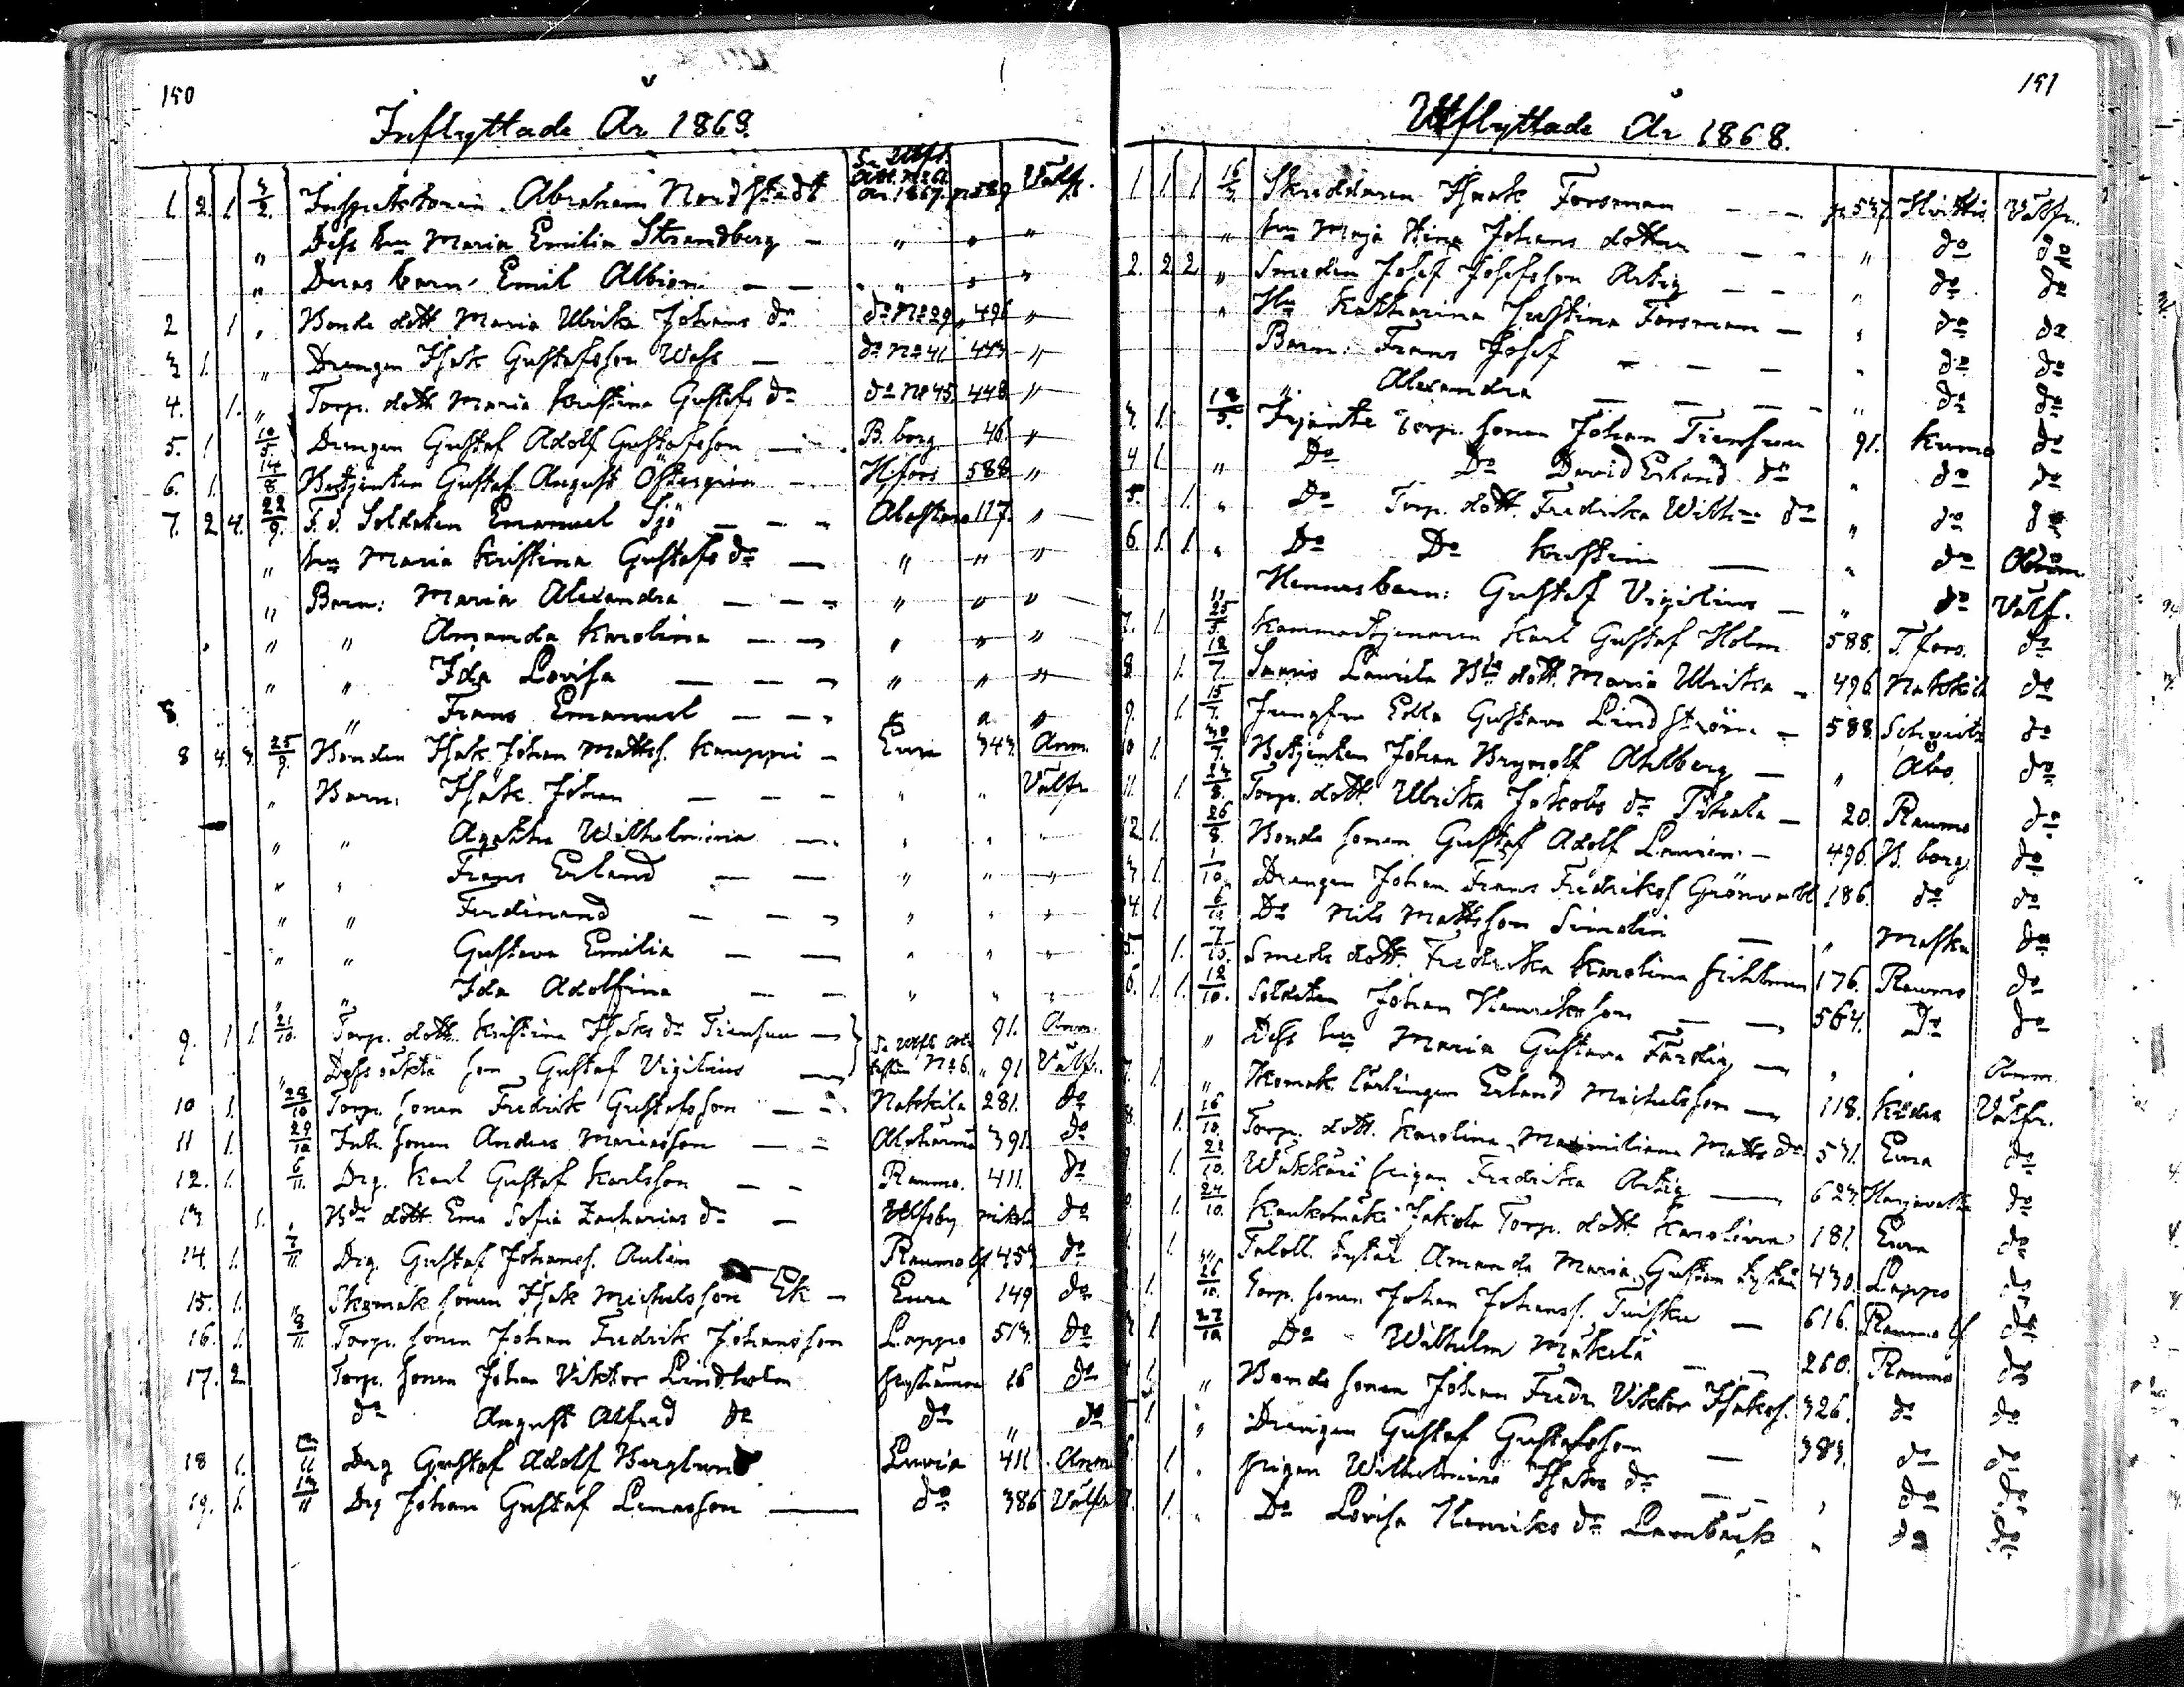 150
Inflyttade År 1868.
1. 2. 1. 3/2. Inspektoren Abraham Nordstedt Se Utfl. Att. No År 1867. p 589 Välfr.
" Dess hu Maria Emilia Strandberg — " " "
" Deras barn: Emil Albion — — " " "
2 1. " Bonde dott Maria Ulrika Johans dr do No 29 " 496 "
3 1. " Drängen Isak Gustafsson Wass — do No 41 443 "
4. 1. " Torp. dott. Maria Kristina Gustafs dr do No 45. 448 "
5. 1 10/5. Drängen Gustaf Adolf Gustafsson — B. borg 46 "
6. 1. 14/8 Betjenten Gustaf August Östergren — H.fors 588 "
7. 2 4. 22/9. F.d. Soldaten Emanuel Sjö — — — Alastaro 117. "
" hu Maria Kristina Gustafs dr — " " "
" Barn: Maria Alexandra — — — " " "
" " Amanda Karolina — — " " "
" " Ida Lovisa — — — " " "
" Frans Emanuel — — " " "
8 4. 3. 25/9. Bonden Isak Johan Mattss. Kauppi — Eura 343. Anm.
" Barn: Isak Johan — — — " " Välfr
" " Agatha Wilhelmina — " " "
" " Frans Erland — — " " "
" " Ferdinand — — — " " "
" " Gustava Emilia — — " " "
" " Ida Adolfina — — " " "
9. 1 1. 21/10. Torp. dott. Kristina Isaks dr Tiensuu — Se utfl. No 6. 91. Anm.
" Dess oäkta son Gustaf Vigilius — " 91 Välfr.
10 1. 28/10 Torp. sonen Fredrik Gustafsson — — Nakkila 281. do
11 1. 29/10 Inh. sonen Anders Mariasson — — 391. do
12. 1. 6/11. Drg. Karl Gustaf Karlsson — — Raumo. 411. do
13 1. " Bde dott. Eva Sofia Zacharias dr — Ulfsby do
14. 1. 7/11. Drg. Gustaf Johanss. Aulin — Raumo lf 453 do
15. 1. " Skomak. sonen Isak Michelsson Ek — Eura 149 do
16. 1. 8/11. Torp. sonen Johan Fredrik Johansson Lappo 513. do
17. 2 Torp. sonen Johan Viktor Lindholm 16 do
do August Alfred do do " do
18 1. 11 Drg Gustaf Adolf Berglund Luvia 411 Anm
19. 1. 13/11 Drg Johan Gustaf Linasson — do 386 Välfr
151
Utflyttade År 1868.
1 1. 1 16/3. Skreddaren Isak Forsman — — p 537 Huittis Välfr.
" hu Maja Stina Johans dotter — — " do do
2. 2 2 " Smeden Josef Josefsson Artig — — " do do
" Hu Katharina Justina Forsman — " do do
Barn: Frans Josef — — — " do do
" Alexandra — — — — " do do
3. 1. 12/5. Tejante Torp. sonen Johan Tiensuu 91. Kumo do
4 1. " Do Do David Erland do " do do
5. 1. " Do Torp. dott. Fredrika Wilhna do " do do
6. 1. 1. " Do Do Kristina — " do Anm.
Hennes barn: Gustaf Vigilius — " do Välf.
7. 1. 25/5. Kammartjenaren Karl Gustaf Holm 588. T.fors. do
8 1. 12/7 Saaris Laurila Bde dott. Maria Ulrika — 496 Nakkila do
9. 1. 15/7. Jungfru Edla Gustava Lindström — 588. Schweitz do
10 1. 30/7. Betjenten Johan Brynolf Ahlberg — " Åbo. do
11. 1. 14/8. Torp. dott. Ulrika Jakobs dr Pihala — 20. Raumo do
12 1. 26/8. Bonde sonen Gustaf Adolf Laurén — 496. B. borg do
3 1. 1/10. Drängen Johan Frans Fredrikss Grönvall 186. do do
4. 1 6/10. Do Nils Mattsson Simolin — " Masku do
5. 1. 7/10. Smeds dott. Fredrika Karolina 176. Raumo do
6. 1. 1. 12/10. Soldaten Johan Henriksson — — 564. Do do
" Dess hu Maria Gustava Färdig — " " Anm
7. 1. " Skomak. lärlingen Erland Michelsson — 118. Välfr.
8. 1. 16/10. Torp. dott. Karolina Maximiliana Matts dr 531. Eura do
1. 22/10. pigan Fredrika Artig — 623. Harjavalta do
1. 24/10. Jakola Torp. dott. Karolina 181. Eura do
1. " Amanda Maria Gustava 430. Lappo do
1. 26/10. Torp. sonen Johan Johanss. — 616. Raumo lf do
1. 27/10 Do Wilhelm Mäkilä — — 260. Raumo do
1. " Bonde sonen Johan Fredr. Viktor Isakss. 326. do do
1. " Drängen Gustaf Gustafsson — 383. do do
1. " Pigan Wilhelmina Isaks dr — — " do do
1. " Do Lovisa Henriks dr " do do